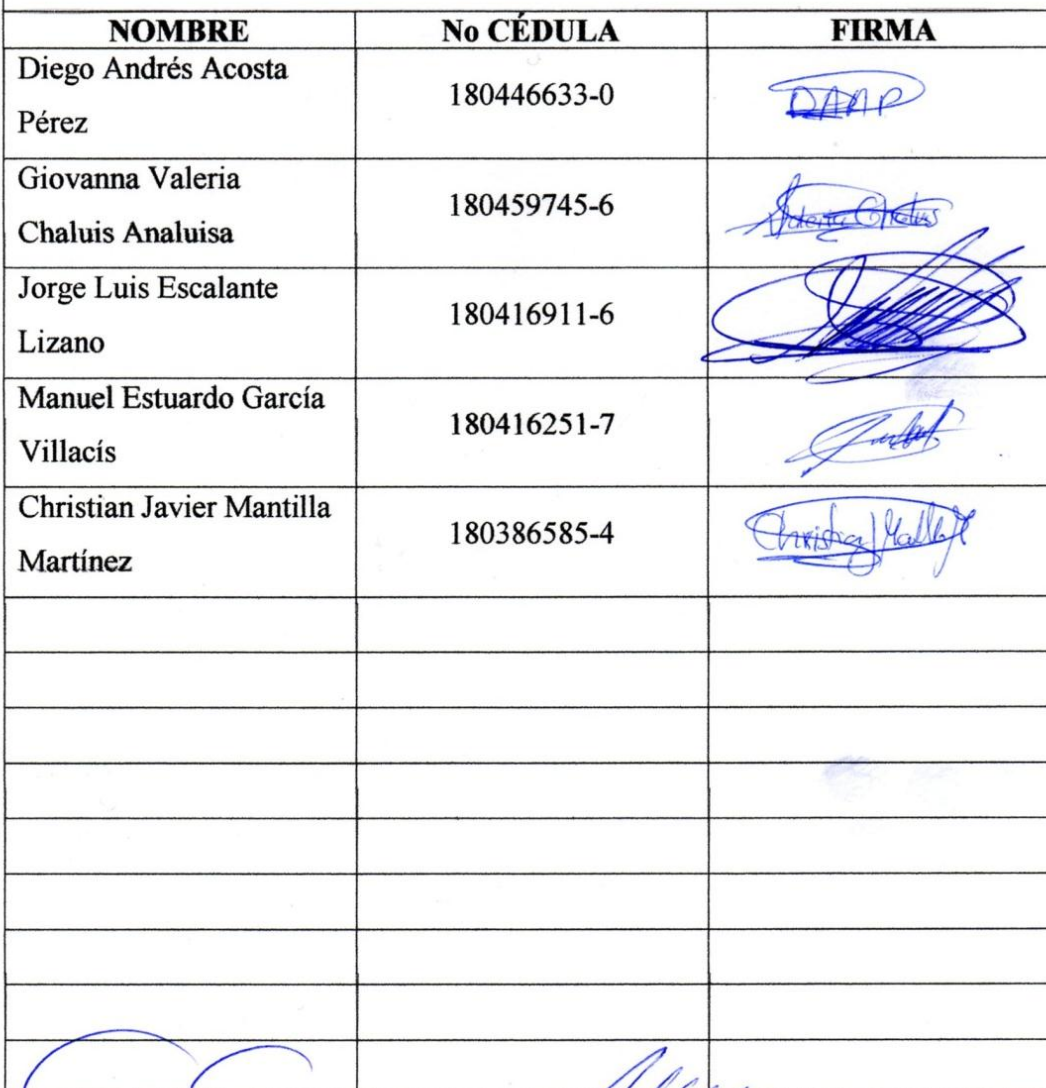 NOMBRE No CÉDULA FIRMA
Diego Andrés Acosta
Pérez
180446633-0
DAAP
Giovanna Valeria
Chaluis Analuisa
180459745-6
Valeria Chaluis
Jorge Luis Escalante
Lizano
180416911-6
Manuel Estuardo García
Villacís
180416251-7
Christian Javier Mantilla
Martínez
180386585-4
Christian